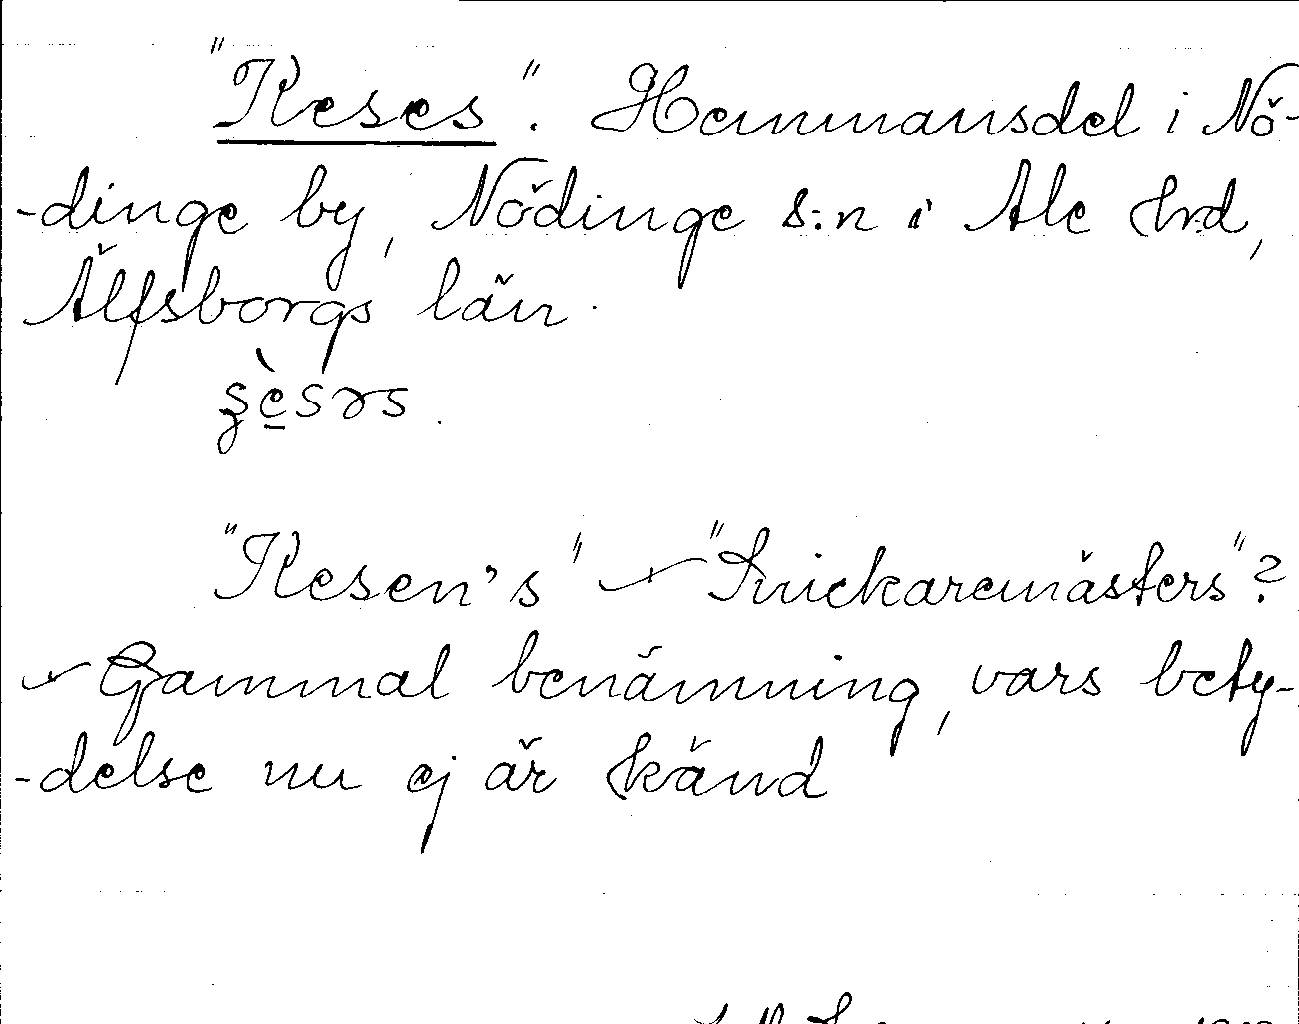 "Keses". Hemmansdel i Nö-
-dinge by, Nödinge s:n i Ale hrd,
Älfsborgs län.
"Kesen's" – "Snickaremästers"?
– Gammal benämning, vars bety-
-delse nu ej är känd